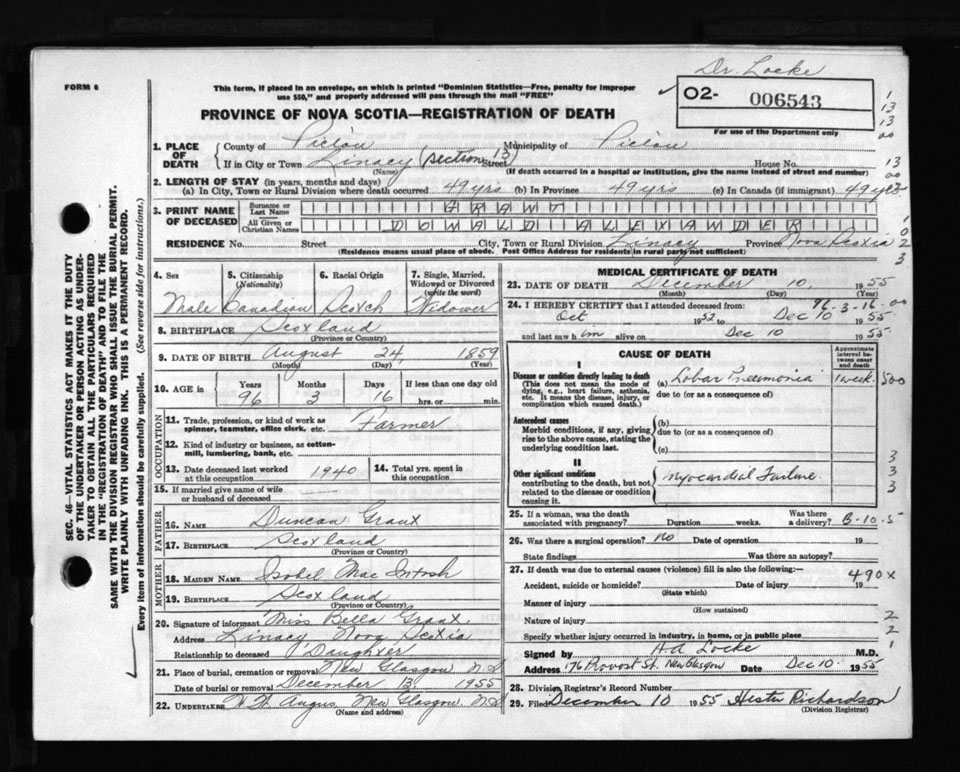 Dr. Locke
FORM 6
This form, if placed in an envelope, on which is printed "Dominion Statistics—Free, penalty for improper
use $50," and properly addressed will pass through the mail "FREE"
O2- 006543
For use of the Department only
PROVINCE OF NOVA SCOTIA—REGISTRATION OF DEATH
1. PLACE OF DEATH
County of Pictou Municipality of Pictou
If in City or Town Linacy (Section 13) Street House No.
(Name) (If death occurred in a hospital or institution, give the name instead of street and number)
2. LENGTH OF STAY (in years, months and days)
(a) In City, Town or Rural Division where death occurred 49 yrs (b) In Province 49 yrs (c) In Canada (if immigrant) 49 yrs
3. PRINT NAME OF DECEASED
Surname or Last Name GRANT
All Given or Christian Names DONALD ALEXANDER
RESIDENCE No. Street City, Town or Rural Division Linacy Province Nova Scotia
(Residence means usual place of abode. Post Office Address for residents in rural parts not sufficient)
4. Sex 5. Citizenship (Nationality) 6. Racial Origin 7. Single, Married, Widowed or Divorced (write the word)
Male Canadian Scotch Widower
8. BIRTHPLACE Scotland
(Province or Country)
9. DATE OF BIRTH August 24, 1859
(Month) (Day) (Year)
10. AGE in Years Months Days If less than one day old
96 3 16 hrs. or min.
OCCUPATION
11. Trade, profession, or kind of work as spinner, teamster, office clerk, etc. Farmer
12. Kind of industry or business, as cotton-mill, lumbering, bank, etc.
13. Date deceased last worked at this occupation 1940 14. Total yrs. spent in this occupation
15. If married give name of wife or husband of deceased
FATHER
16. NAME Duncan Grant
17. BIRTHPLACE Scotland
(Province or Country)
MOTHER
18. MAIDEN NAME Isobel MacIntosh
19. BIRTHPLACE Scotland
(Province or Country)
20. Signature of informant Miss Bella Grant
Address Linacy Nova Scotia
Relationship to deceased Daughter
21. Place of burial, cremation or removal New Glasgow N.S
Date of burial or removal December 13 1955
22. UNDERTAKER Angus, New Glasgow, N.S
(Name and address)
MEDICAL CERTIFICATE OF DEATH
23. DATE OF DEATH December 10, 1955
(Month) (Day) (Year)
96-3-16
24. I HEREBY CERTIFY that I attended deceased from:
Oct 1952 to Dec 10 1955
and last saw him alive on Dec 10 1955
CAUSE OF DEATH
Approximate interval between onset and death
I
Disease or condition directly leading to death
(This does not mean the mode of dying, e.g., heart failure, asthenia, etc. It means the disease, injury, or complication which caused death.)
(a) Lobar Pneumonia 1 week
due to (or as a consequence of)
Antecedent causes
Morbid conditions, if any, giving rise to the above cause, stating the underlying condition last.
(b)
due to (or as a consequence of)
(c)
II
Other significant conditions
contributing to the death, but not related to the disease or condition causing it.
Myocardial Failure
25. If a woman, was the death associated with pregnancy? Duration weeks. Was there a delivery?
26. Was there a surgical operation? No Date of operation 19
State findings Was there an autopsy?
27. If death was due to external causes (violence) fill in also the following:—
490X
Accident, suicide or homicide? Date of injury 19
(State which)
Manner of injury
(How sustained)
Nature of injury
Specify whether injury occurred in industry, in home, or in public place
Signed by HA Locke M.D.
Address 176 Provost St. New Glasgow Date Dec 10. 1955
28. Division Registrar's Record Number
29. Filed December 10 1955 Hester Richardson
(Division Registrar)
SEC. 46—VITAL STATISTICS ACT MAKES IT THE DUTY
OF THE UNDERTAKER OR PERSON ACTING AS UNDER-
TAKER TO OBTAIN ALL THE PARTICULARS REQUIRED
IN THE "REGISTRATION OF DEATH" AND TO FILE THE
SAME WITH THE DIVISION REGISTRAR WHO SHALL ISSUE THE BURIAL PERMIT.
WRITE PLAINLY WITH UNFADING INK. THIS IS A PERMANENT RECORD.
Every item of information should be carefully supplied. (See reverse side for instructions.)